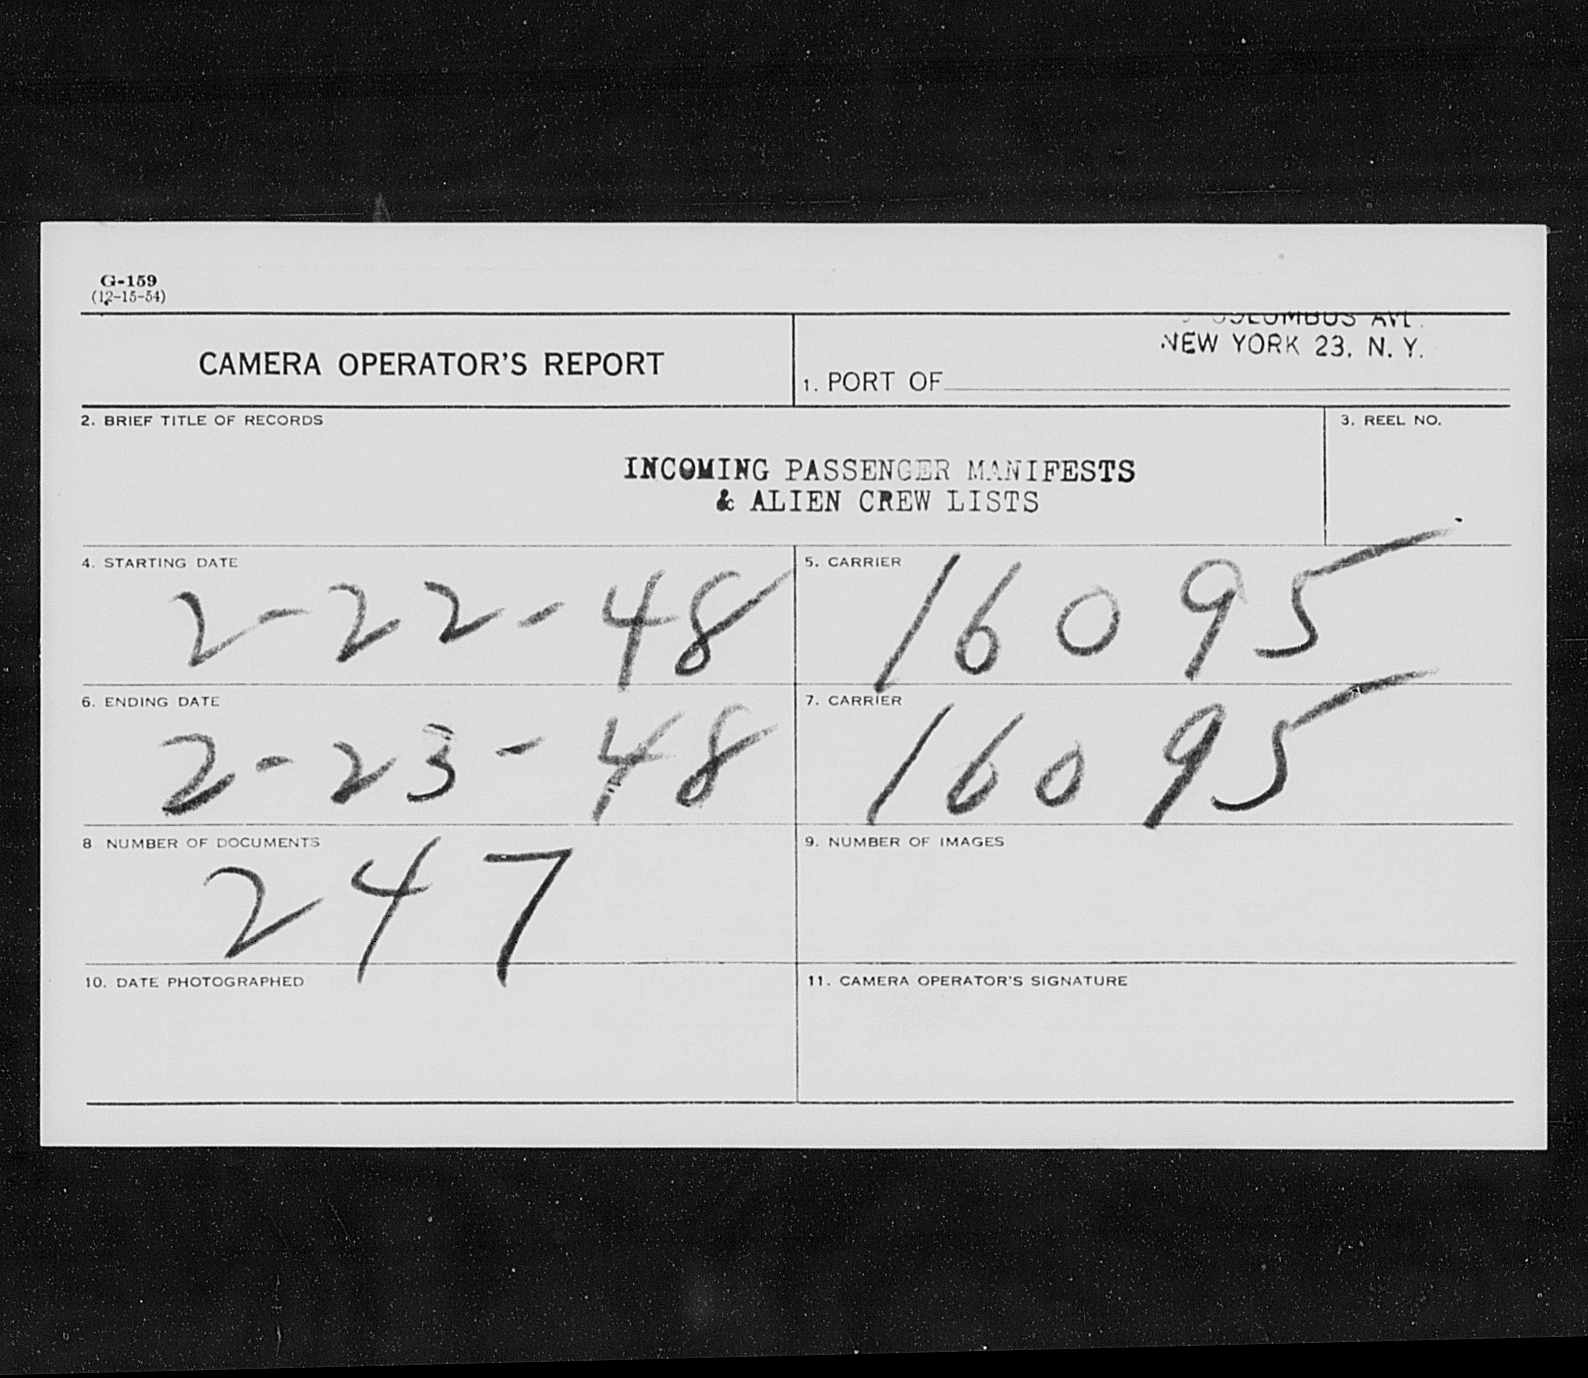 G-159
(12-15-54)
COLUMBUS AVE.
NEW YORK 23, N. Y.
CAMERA OPERATOR'S REPORT
1. PORT OF
2. BRIEF TITLE OF RECORDS
3. REEL NO.
INCOMING PASSENGER MANIFESTS
& ALIEN CREW LISTS
4. STARTING DATE
2-22-48
5. CARRIER
16095
6. ENDING DATE
2-23-48
7. CARRIER
16095
8 NUMBER OF DOCUMENTS
247
9. NUMBER OF IMAGES
10. DATE PHOTOGRAPHED
11. CAMERA OPERATOR'S SIGNATURE